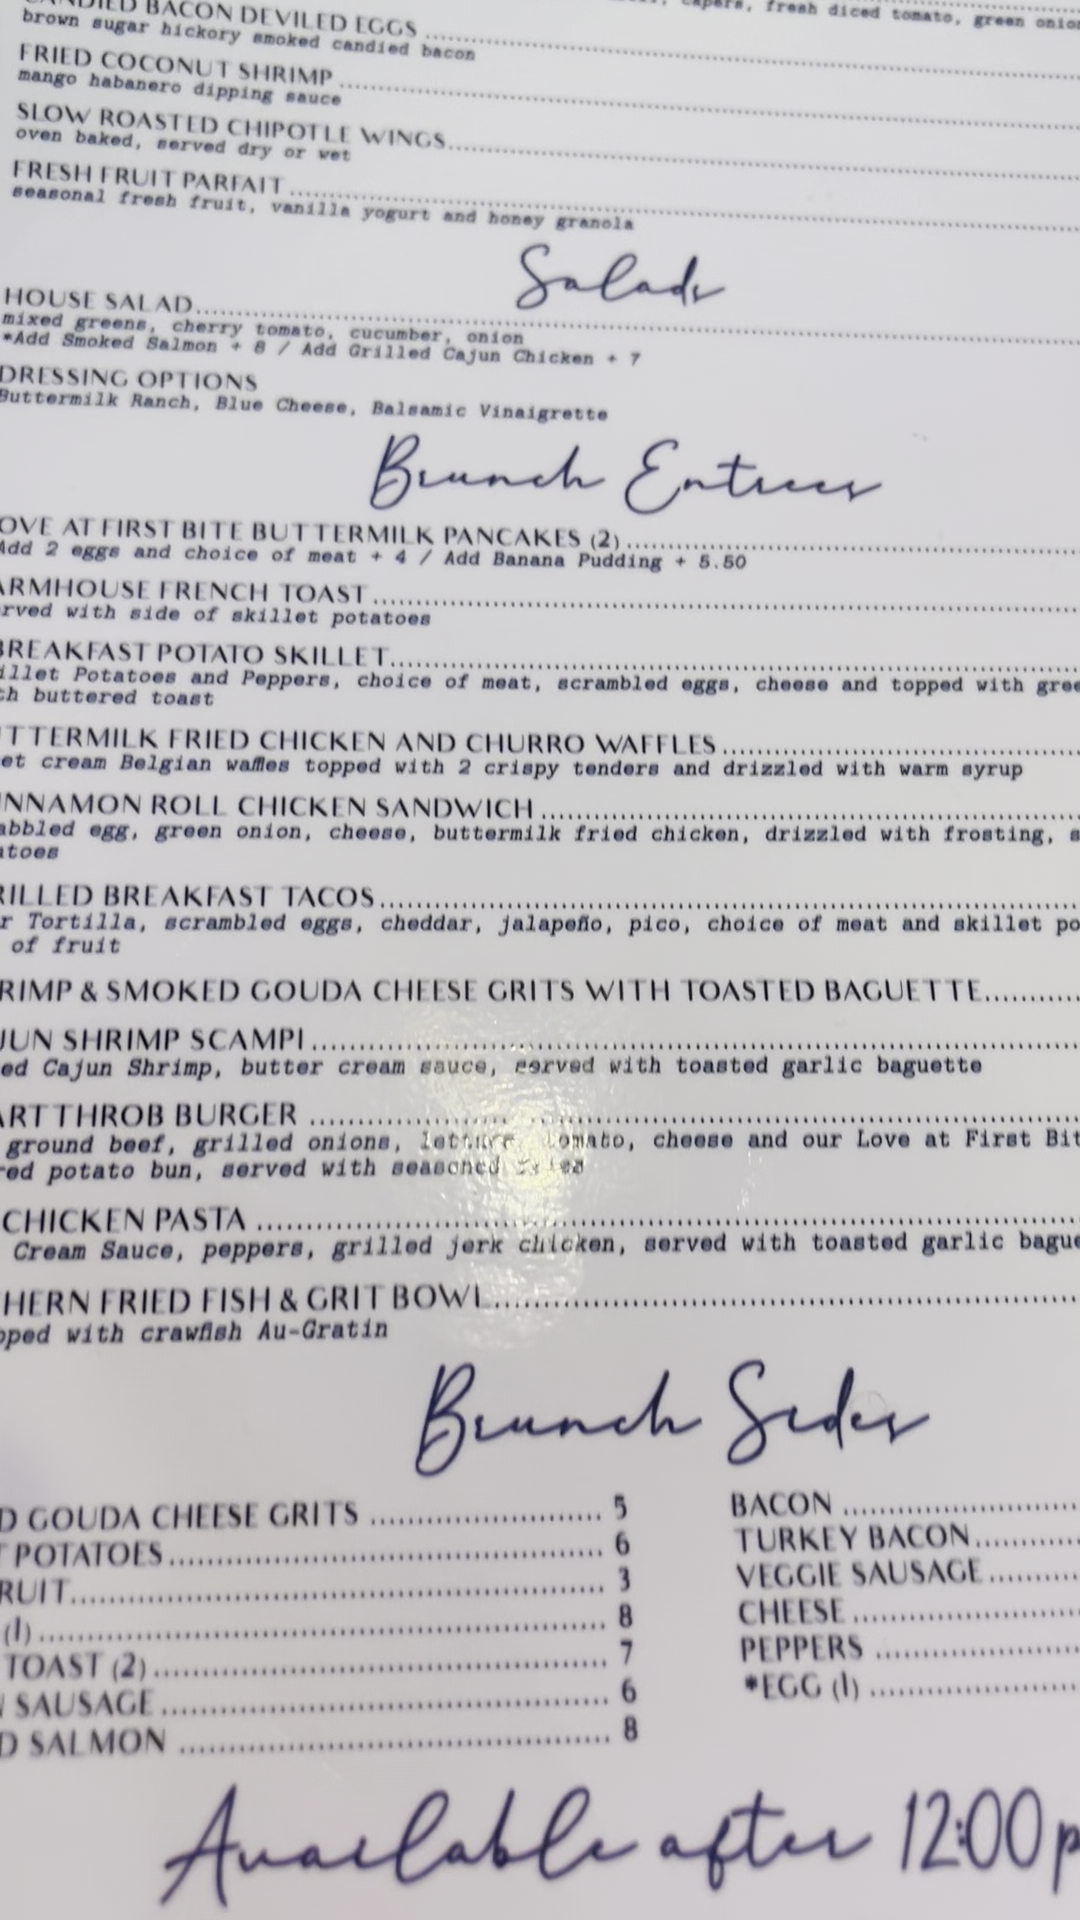 capers, fresh diced tomato, green onion
BACON DEVILED EGGS
brown sugar hickory smoked candied bacon
FRIED COCONUT SHRIMP
mango habanero dipping sauce
SLOW ROASTED CHIPOTLE WINGS
oven baked, served dry or wet
FRESH FRUIT PARFAIT
seasonal fresh fruit, vanilla yogurt and honey granola
Salads
HOUSE SALAD
mixed greens, cherry tomato, cucumber, onion
*Add Smoked Salmon + 8 / Add Grilled Cajun Chicken + 7
DRESSING OPTIONS
Buttermilk Ranch, Blue Cheese, Balsamic Vinaigrette
Brunch Entrees
OVE AT FIRST BITE BUTTERMILK PANCAKES (2)
Add 2 eggs and choice of meat + 4 / Add Banana Pudding + 5.50
ARMHOUSE FRENCH TOAST
rved with side of skillet potatoes
BREAKFAST POTATO SKILLET
illet Potatoes and Peppers, choice of meat, scrambled eggs, cheese and topped with gree
th buttered toast
TTERMILK FRIED CHICKEN AND CHURRO WAFFLES
et cream Belgian waffles topped with 2 crispy tenders and drizzled with warm syrup
NNAMON ROLL CHICKEN SANDWICH
abbled egg, green onion, cheese, buttermilk fried chicken, drizzled with frosting, s
atoes
RILLED BREAKFAST TACOS
r Tortilla, scrambled eggs, cheddar, jalapeño, pico, choice of meat and skillet po
of fruit
RIMP & SMOKED GOUDA CHEESE GRITS WITH TOASTED BAGUETTE
JUN SHRIMP SCAMPI
ed Cajun Shrimp, butter cream sauce, served with toasted garlic baguette
ARTTHROB BURGER
ground beef, grilled onions, lettuce, tomato, cheese and our Love at First Bit
red potato bun, served with seasoned fries
CHICKEN PASTA
Cream Sauce, peppers, grilled jerk chicken, served with toasted garlic bague
HERN FRIED FISH & GRIT BOWL
pped with crawfish Au-Gratin
Brunch Sides
D GOUDA CHEESE GRITS 5
T POTATOES 6
RUIT 3
(1) 8
TOAST (2) 7
SAUSAGE 6
D SALMON 8
BACON
TURKEY BACON
VEGGIE SAUSAGE
CHEESE
PEPPERS
*EGG (1)
Available after 12:00 p